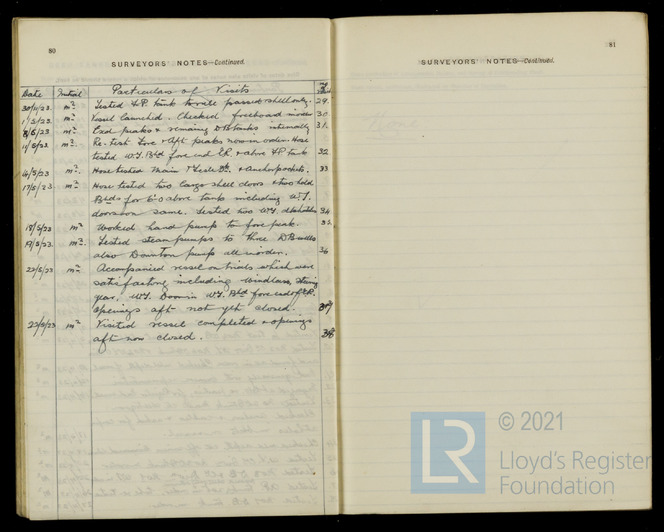 80
SURVEYORS' NOTES—Continued.
Date Initial Particulars of Visits No
Tested F.P. tank to rule passed shell only. 29.
1/5/23. Vessel launched. Checked freeboard 30
8/5/23 Exd peaks & remaining DBtanks internally 31.
Re. test Fore & Aft peaks now in order. Hose
tested W.T. Bhd fore end ER & above F.P. tank 32
Hose tested main & 33
17/5/23. Hose tested two cargo shell doors & two hold
Bhds for 6'0 above tank including W.T.
doors on same. Tested two W.T. 34
18/5/23 Worked hand pump to fore peak. 35.
Tested steam pumps to three DB wells
also Downton pump all in order. 36
22/5/23 Accompanied vessel on trials which were
satisfactory including windlass, steering
gear, W.T. Door in W.T. Bhd fore end of ER.
Openings aft not yet closed. 37
Visited vessel completed & openings
aft now closed. 38
81
SURVEYORS' NOTES—Continued.
LR
© 2021
Lloyd's Register
Foundation